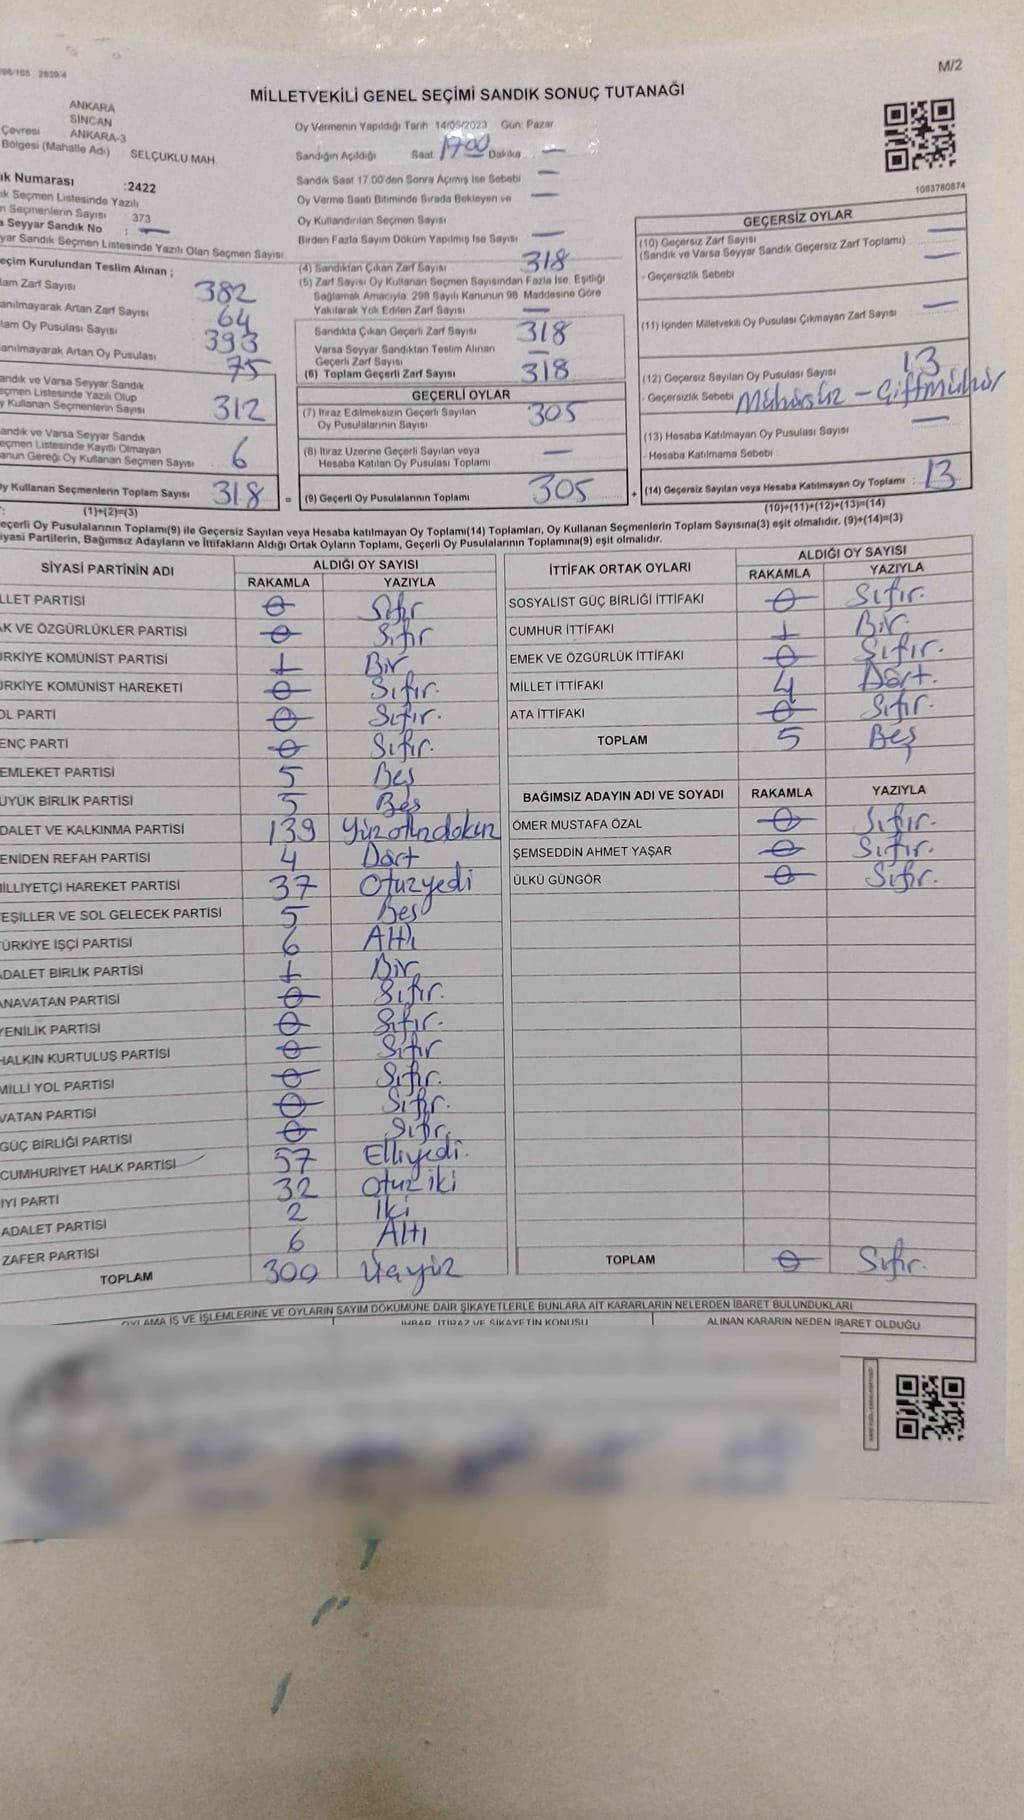 M/2
MİLLETVEKİLİ GENEL SEÇİMİ SANDIK SONUÇ TUTANAĞI
ANKARA
SİNCAN
Çevresi ANKARA-3
Bölgesi (Mahalle Adı) SELÇUKLU MAH.
ık Numarası :2422
ık Seçmen Listesinde Yazılı
n Seçmenlerin Sayısı 373
a Seyyar Sandık No : —
yar Sandık Seçmen Listesinde Yazılı Olan Seçmen Sayısı
Oy Vermenin Yapıldığı Tarih 14/05/2023 Gün: Pazar
Sandığın Açıldığı Saat 17.00 Dakika —
Sandık Saat 17.00'den Sonra Açılmış İse Sebebi —
Oy Verme Saati Bitiminde Sırada Bekleyen ve —
Oy Kullandırılan Seçmen Sayısı
Birden Fazla Sayım Döküm Yapılmış İse Sayısı —
1083780874
eçim Kurulundan Teslim Alınan ;
lam Zarf Sayısı 382
anılmayarak Artan Zarf Sayısı 64
lam Oy Pusulası Sayısı 393
anılmayarak Artan Oy Pusulası 75
andık ve Varsa Seyyar Sandık
eçmen Listesinde Yazılı Olup
y Kullanan Seçmenlerin Sayısı 312
andık ve Varsa Seyyar Sandık
eçmen Listesinde Kayıtlı Olmayan
anun Gereği Oy Kullanan Seçmen Sayısı 6
Oy Kullanan Seçmenlerin Toplam Sayısı 318 =
(1)+(2)=(3)
(4) Sandıktan Çıkan Zarf Sayısı 318
(5) Zarf Sayısı Oy Kullanan Seçmen Sayısından Fazla İse, Eşitliği
Sağlamak Amacıyla, 298 Sayılı Kanunun 98. Maddesine Göre
Yakılarak Yok Edilen Zarf Sayısı —
Sandıkta Çıkan Geçerli Zarf Sayısı 318
Varsa Seyyar Sandıktan Teslim Alınan
Geçerli Zarf Sayısı —
(6) Toplam Geçerli Zarf Sayısı 318
GEÇERLİ OYLAR
(7) İtiraz Edilmeksizin Geçerli Sayılan
Oy Pusulalarının Sayısı 305
(8) İtiraz Üzerine Geçerli Sayılan veya
Hesaba Katılan Oy Pusulası Toplamı —
(9) Geçerli Oy Pusulalarının Toplamı 305 +
GEÇERSİZ OYLAR
(10) Geçersiz Zarf Sayısı —
(Sandık ve Varsa Seyyar Sandık Geçersiz Zarf Toplamı)
- Geçersizlik Sebebi —
(11) İçinden Milletvekili Oy Pusulası Çıkmayan Zarf Sayısı —
(12) Geçersiz Sayılan Oy Pusulası Sayısı 13
- Geçersizlik Sebebi Mühürsüz - Çiftmühür
(13) Hesaba Katılmayan Oy Pusulası Sayısı —
- Hesaba Katılmama Sebebi
(14) Geçersiz Sayılan veya Hesaba Katılmayan Oy Toplamı : 13
(10)+(11)+(12)+(13)=(14)
eçerli Oy Pusulalarının Toplamı(9) ile Geçersiz Sayılan veya Hesaba katılmayan Oy Toplamı(14) Toplamları, Oy Kullanan Seçmenlerin Toplam Sayısına(3) eşit olmalıdır. (9)+(14)=(3)
iyasi Partilerin, Bağımsız Adayların ve İttifakların Aldığı Ortak Oyların Toplamı, Geçerli Oy Pusulalarının Toplamına(9) eşit olmalıdır.
SİYASİ PARTİNİN ADI ALDIĞI OY SAYISI
RAKAMLA YAZIYLA
LLET PARTİSİ 0 Sıfır
AK VE ÖZGÜRLÜKLER PARTİSİ 0 Sıfır
ÜRKİYE KOMÜNİST PARTİSİ 1 Bir
ÜRKİYE KOMÜNİST HAREKETİ 0 Sıfır.
OL PARTİ 0 Sıfır.
ENÇ PARTİ 0 Sıfır.
EMLEKET PARTİSİ 5 Beş
ÜYÜK BİRLİK PARTİSİ 5 Beş
DALET VE KALKINMA PARTİSİ 139 Yüzotuzdokuz
ENİDEN REFAH PARTİSİ 4 Dört
İLLİYETÇİ HAREKET PARTİSİ 37 Otuzyedi
EŞİLLER VE SOL GELECEK PARTİSİ 5 Beş
TÜRKİYE İŞÇİ PARTİSİ 6 Altı
ADALET BİRLİK PARTİSİ 1 Bir
ANAVATAN PARTİSİ 0 Sıfır.
YENİLİK PARTİSİ 0 Sıfır.
HALKIN KURTULUŞ PARTİSİ 0 Sıfır
MİLLİ YOL PARTİSİ 0 Sıfır.
VATAN PARTİSİ 0 Sıfır.
GÜÇ BİRLİĞİ PARTİSİ 0 Sıfır.
CUMHURİYET HALK PARTİSİ 57 Elliyedi.
İYİ PARTİ 32 Otuziki
ADALET PARTİSİ 2 İki
ZAFER PARTİSİ 6 Altı
TOPLAM 300 Üçyüz
İTTİFAK ORTAK OYLARI ALDIĞI OY SAYISI
RAKAMLA YAZIYLA
SOSYALİST GÜÇ BİRLİĞİ İTTİFAKI 0 Sıfır.
CUMHUR İTTİFAKI 1 Bir.
EMEK VE ÖZGÜRLÜK İTTİFAKI 0 Sıfır.
MİLLET İTTİFAKI 4 Dört.
ATA İTTİFAKI 0 Sıfır.
TOPLAM 5 Beş
BAĞIMSIZ ADAYIN ADI VE SOYADI RAKAMLA YAZIYLA
ÖMER MUSTAFA ÖZAL 0 Sıfır.
ŞEMSEDDİN AHMET YAŞAR 0 Sıfır.
ÜLKÜ GÜNGÖR 0 Sıfır.
TOPLAM 0 Sıfır.
OYLAMA İŞ VE İŞLEMLERİNE VE OYLARIN SAYIM DÖKÜMÜNE DAİR ŞİKAYETLERLE BUNLARA AİT KARARLARIN NELERDEN İBARET BULUNDUKLARI
İHBAR, İTİRAZ VE ŞİKAYETİN KONUSU ALINAN KARARIN NEDEN İBARET OLDUĞU